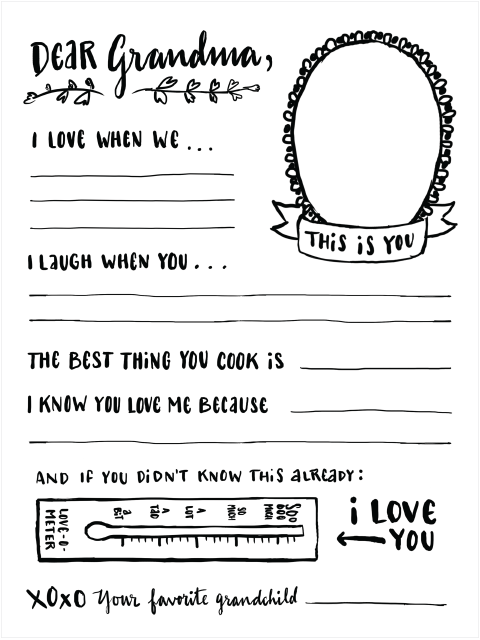 DEAR Grandma,
I LOVE WHEN WE ...
THIS IS YOU
I LAUGH WHEN YOU ...
THE BEST THING YOU COOK IS
I KNOW YOU LOVE ME BECAUSE
AND IF YOU DIDN'T KNOW THIS ALREADY:
LOVE-O-
METER
A
BIT
A
TAD
A
LOT
SO
MUCH
SOOO
OOO
MUCH
i LOVE
YOU
XOXO Your favorite grandchild